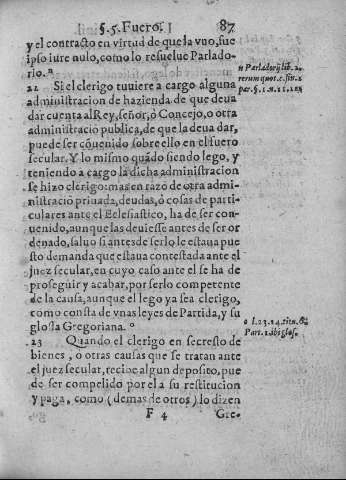 §.5. Fuero. 87
y el contracto en virtud de que la vuo, fue
ipso iure nulo, como lo resuelve Parlado-
rio. n
n Parladorij lib. 2.
rerum quot. c. fin. 1
par. §. 1. n. 11. 12
22 Si el clerigo tuuiere a cargo alguna
administracion de hazienda de que deua
dar cuenta al Rey, señor, ò Concejo, o otra
administraciõ publica, de que la deua dar,
puede ser cõuenido sobre ello en el fuero
secular. Y lo mismo quãdo siendo lego, y
teniendo a cargo la dicha administracion
se hizo clerigo: mas en razõ de otra admi-
nistraciõ priuada, deudas, ò cosas de parti-
culares ante el Eclesiastico, ha de ser con-
uenido, aunque las deuiesse antes de ser or
denado, saluo si antes de serlo le estaua pue
sto demanda que estaua contestada ante el
juez secular, en cuyo caso ante el se ha de
proseguir y acabar, por serlo competente
de la causa, aunque el lego ya sea clerigo,
como consta de vnas leyes de Partida, y su
glossa Gregoriana. o
o l. 23. 24. tit. 6.
Part. 1. ibi glos.
23 Quando el clerigo en secresto de
bienes, o otras causas que se tratan ante
el juez secular, recibe algun deposito, pue
de ser compelido por el a su restitucion
y paga, como (demas de otros) lo dizen
F 4 Gre-